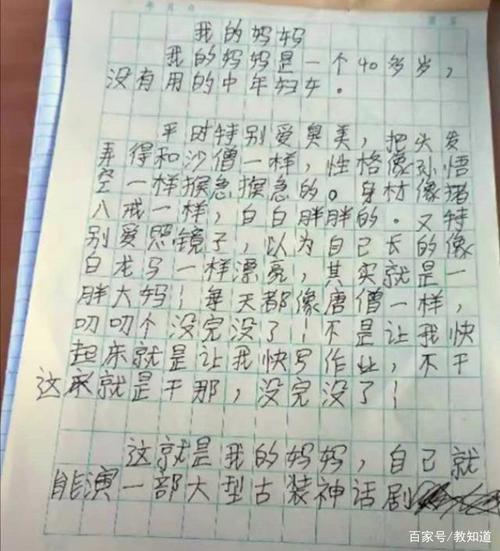 年 月 日
我的妈妈
我的妈妈是一个40多岁，
没有用的中年妇女。
平时特别爱臭美，把头发
弄得和沙僧一样，性格像孙悟
空一样猴急猴急的。身材像猪
八戒一样，白白胖胖的。又特
别爱照镜子，以为自己长的像
白龙马一样漂亮，其实就是一
胖大妈！每天都像唐僧一样，
叨叨个没完没了！不是让我快
起床就是让我快写作业，不干
这来就是干那，没完没了！
这就是我的妈妈，自己就
能演一部大型古装神话剧
百家号/教知道